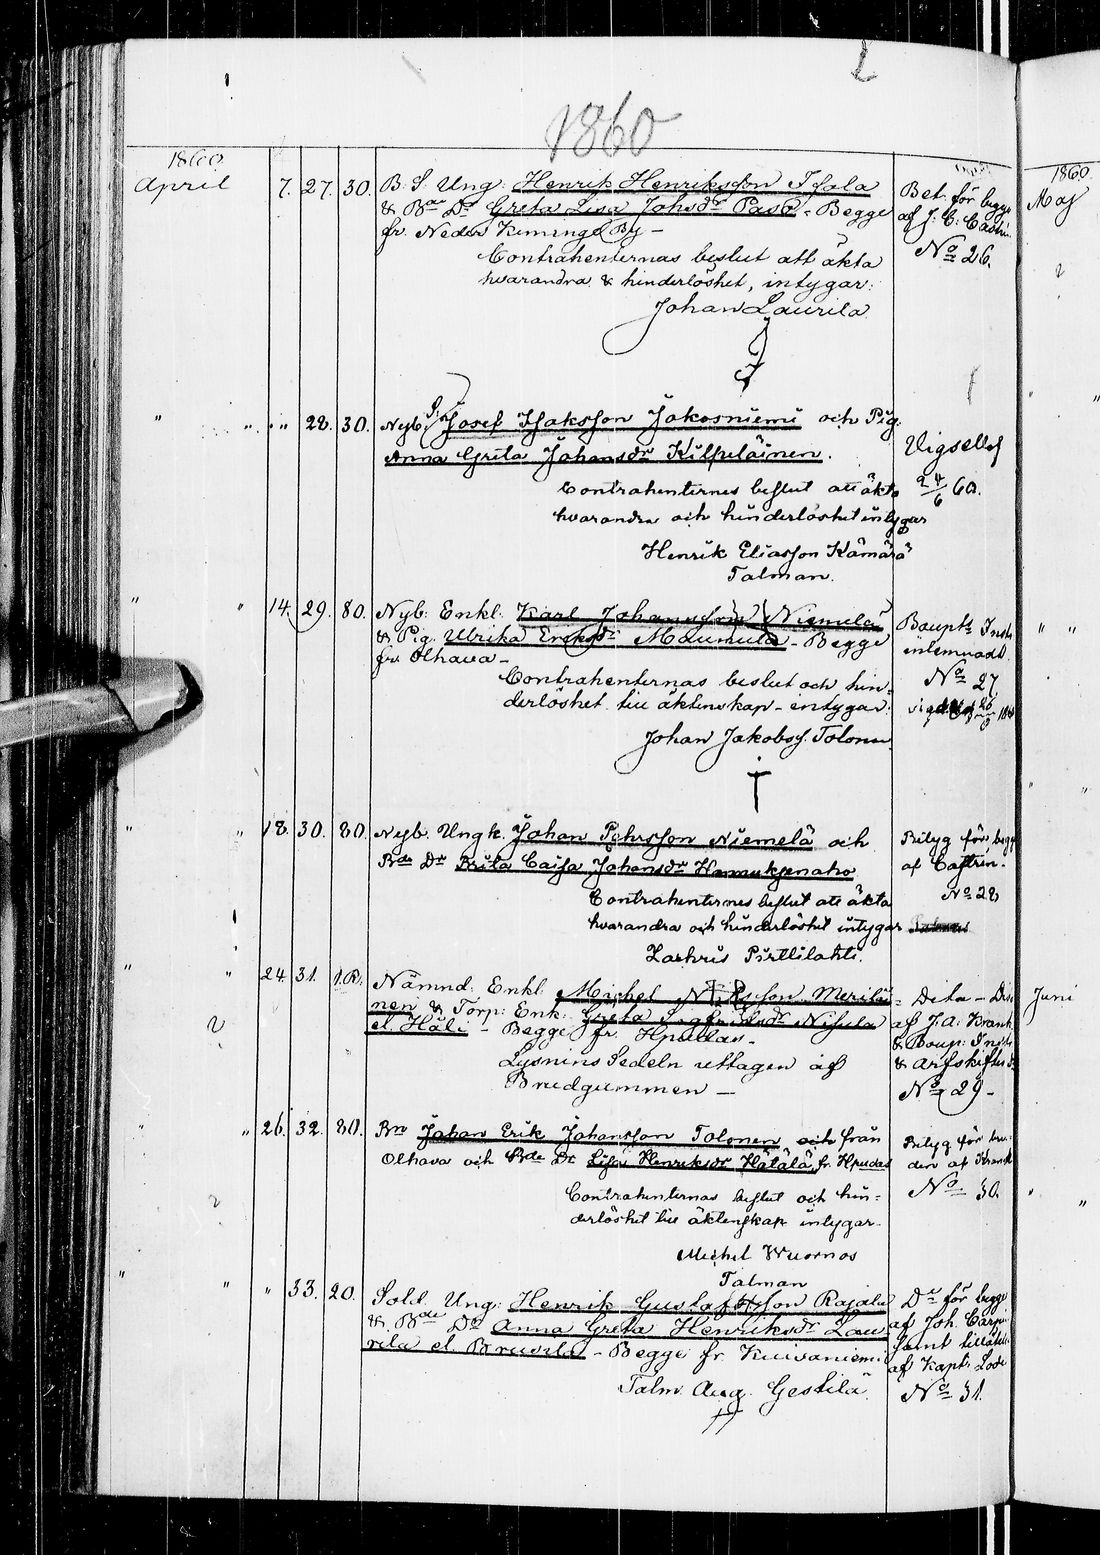 1860
1860.
April
7. 27. 30. B. S. Ung: Henrik Henriksson Isola
& Bde Dr Greta Lisa Johsdr Paso - Begge
fr. Neder Kiminge By -
Contrahenternas beslut att äkta
hvarandra & hinderlöshet, intygar:
Johan Laurila
Bet. för begge
af J. C. Castrén
No 26.
" " " 28. 30. Nyb: S: Josef Isaksson Jakosniemi och Pig.
Anna Greta Johansdr Kilpeläinen.
Contrahenternes beslut att äkta
hvarandra och hinderlöshet intygar
Henrik Eliasson Kämärä
Talman.
Vigselbf
24/6 60.
" " 14. 29. 80. Nyb: Enkl. Karl Johansson Niemelä
& Pig. Ulrika Ericsdr Maunula - Begge
fr. Olhava -
Contrahenternas beslut och hin=
derlöshet till äktenskap - intygar:
Johan Jakobss. Tolonen
Boupts Inst.
inlemnadt.
No 27
" " 18. 30. 80. Nyb. Ungk. Johan Pehrsson Niemelä och
Bde Dr Brita Caisa Johansdr Hannuksenaho
Contrahenternes beslut att äkta
hvarandra och hinderlöshet intygar
Zachris Pirttilahti.
Betyg för begge
af Castrén.
No 28
" " 24. 31. 1.R. Nämnd: Enkl: Michel Nilsson Meriläi=
nen & Torp: Enk: Greta Sigfridsdr Nisula
el Häli - Begge fr. Hpudas -
Lysnins Sedeln uttagen af
Brudgummen -
Dito - Dito
af J: A: Krank
& Boup: Inst:
& Arfskifte
No 29 -
" 26. 32. 80. Bn Johan Erik Johansson Tolonen och från
Olhava och Bde Dr Lisa Henriksdr Hätälä, fr. Hpudas
Contrahenternas beslut och hin=
derlöshet till äktenskap intygar
Michel Wuornos
Talman
Betyg för bru-
den af Krank
No 30.
" " " 33. 20. Sold. Ung: Henrik Gustafsson Rajala
& Bde Dr Anna Greta Henriksdr Lau
rila el Bruula - Begge fr. Kuivaniemi
Talm. Aug. Gestilä
Do för begge
af Joh. Carp
samt tillåtels
af Kapt. Lode
No 31.
1860.
Maj
Juni